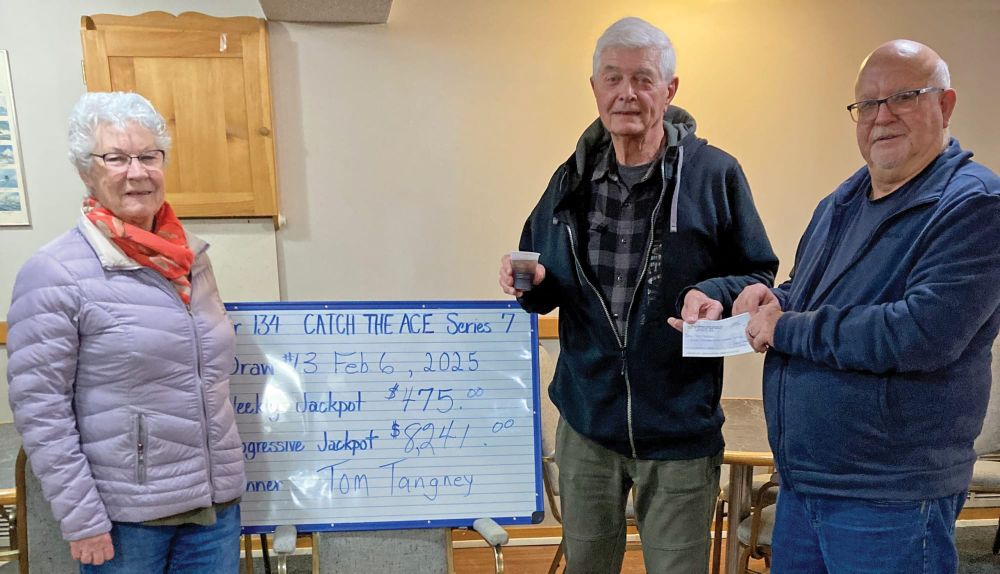 r 134 CATCH THE ACE Series 7
Draw #13 Feb 6, 2025
Weekly Jackpot $475.00
ogressive Jackpot $8,241.00
nner Tom Tangney